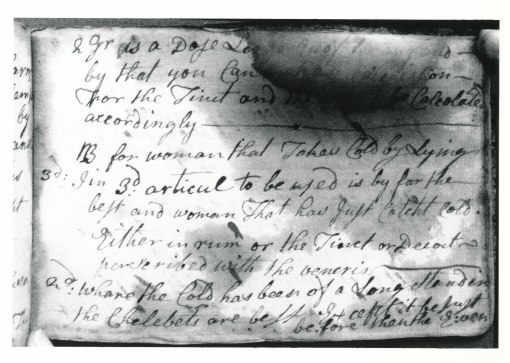 2 Gr is a Dose
by that you Can
For the Tinct and to Calcolate
accordingly
NB for woman that Takes Cold by Lying
3d: Jin 3d articul to be used is by far the
best and woman That has Just Catcht Cold.
Either in rum or the Tinct or Decoct
perscribed with the veneris
2d: Whare the Cold has been of a Long Standin
the Chelebets are best Except it be Just
before than the Given